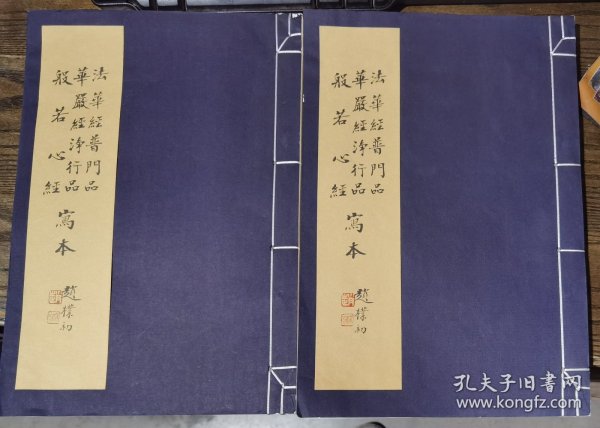 法華經普門品
華嚴經淨行品
般若心經
寫本
趙樸初
法華經普門品
華嚴經淨行品
般若心經
寫本
趙樸初
孔夫子旧书网
www.kongfz.com